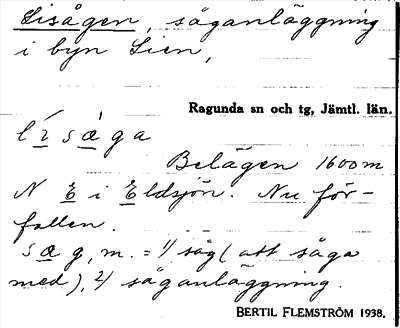 Lisågen, såganläggning
i byn Lien,
Ragunda sn och tg, Jämtl. län.
lísǽga
Belägen 1600 m
N E i Eldsjön. Nu för-
fallen.
sæg, m. = 1/ såg (att såga
med), 2/ såganläggning.
BERTIL FLEMSTRÖM 1938.